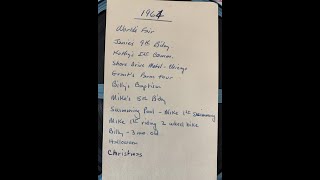 1964
Worlds Fair
James 9th Bday
Kathy's 1st Comm.
Shore Drive Motel - Chicago
Grant's Farm tour
Billy's Baptism
Mike's 5th Bday
Swimming Pool - Mike 1st swimming
Mike 1st riding 2 wheel bike
Billy - 3 mo. old
Halloween
Christmas